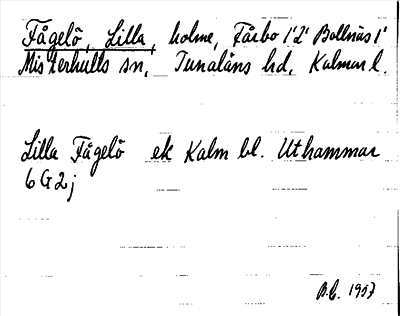 Fågelö, Lilla, holme, Fårbo 1'2' Bollnäs 1'
Misterhults sn, Tunaläns hd, Kalmar l.
Lilla Fågelö ek Kalm bl. Uthammar
6G2j
B.E. 1957